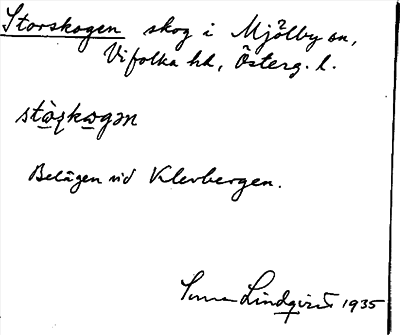 Storskogen skog i Mjölby sn,
Vifolka hd, Österg. l.
stò̱ʂko̱gən
Belägen vid Klevbergen.
Lindqvist 1935